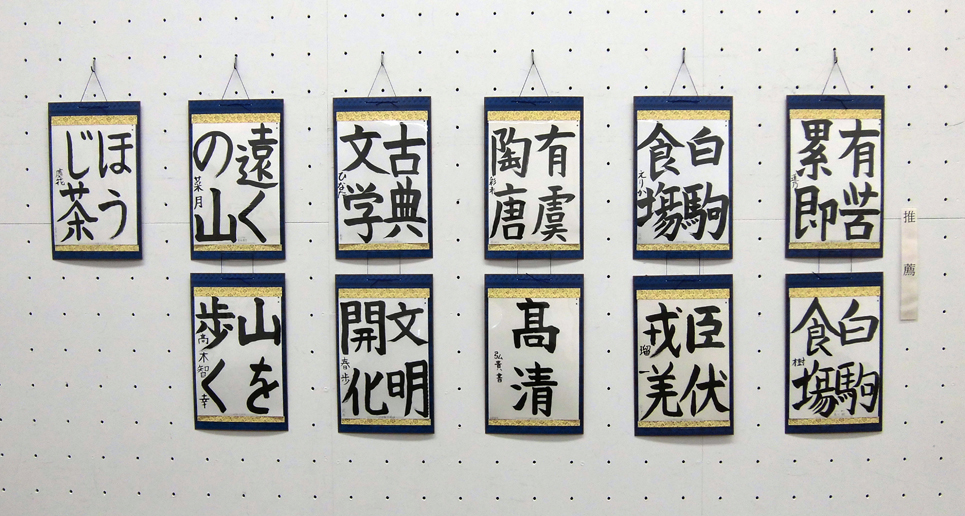 推薦
有苦
累即
白駒
食場
有虞
陶唐
彩衣
古典
文学
ひなた
遠く
の山
菜月
ほう
じ茶
杏花
白駒
食場
樹
臣伏
戎羌
瑠一
髙清
弘貴書
文明
開化
春歩
山を
歩く
高木智幸